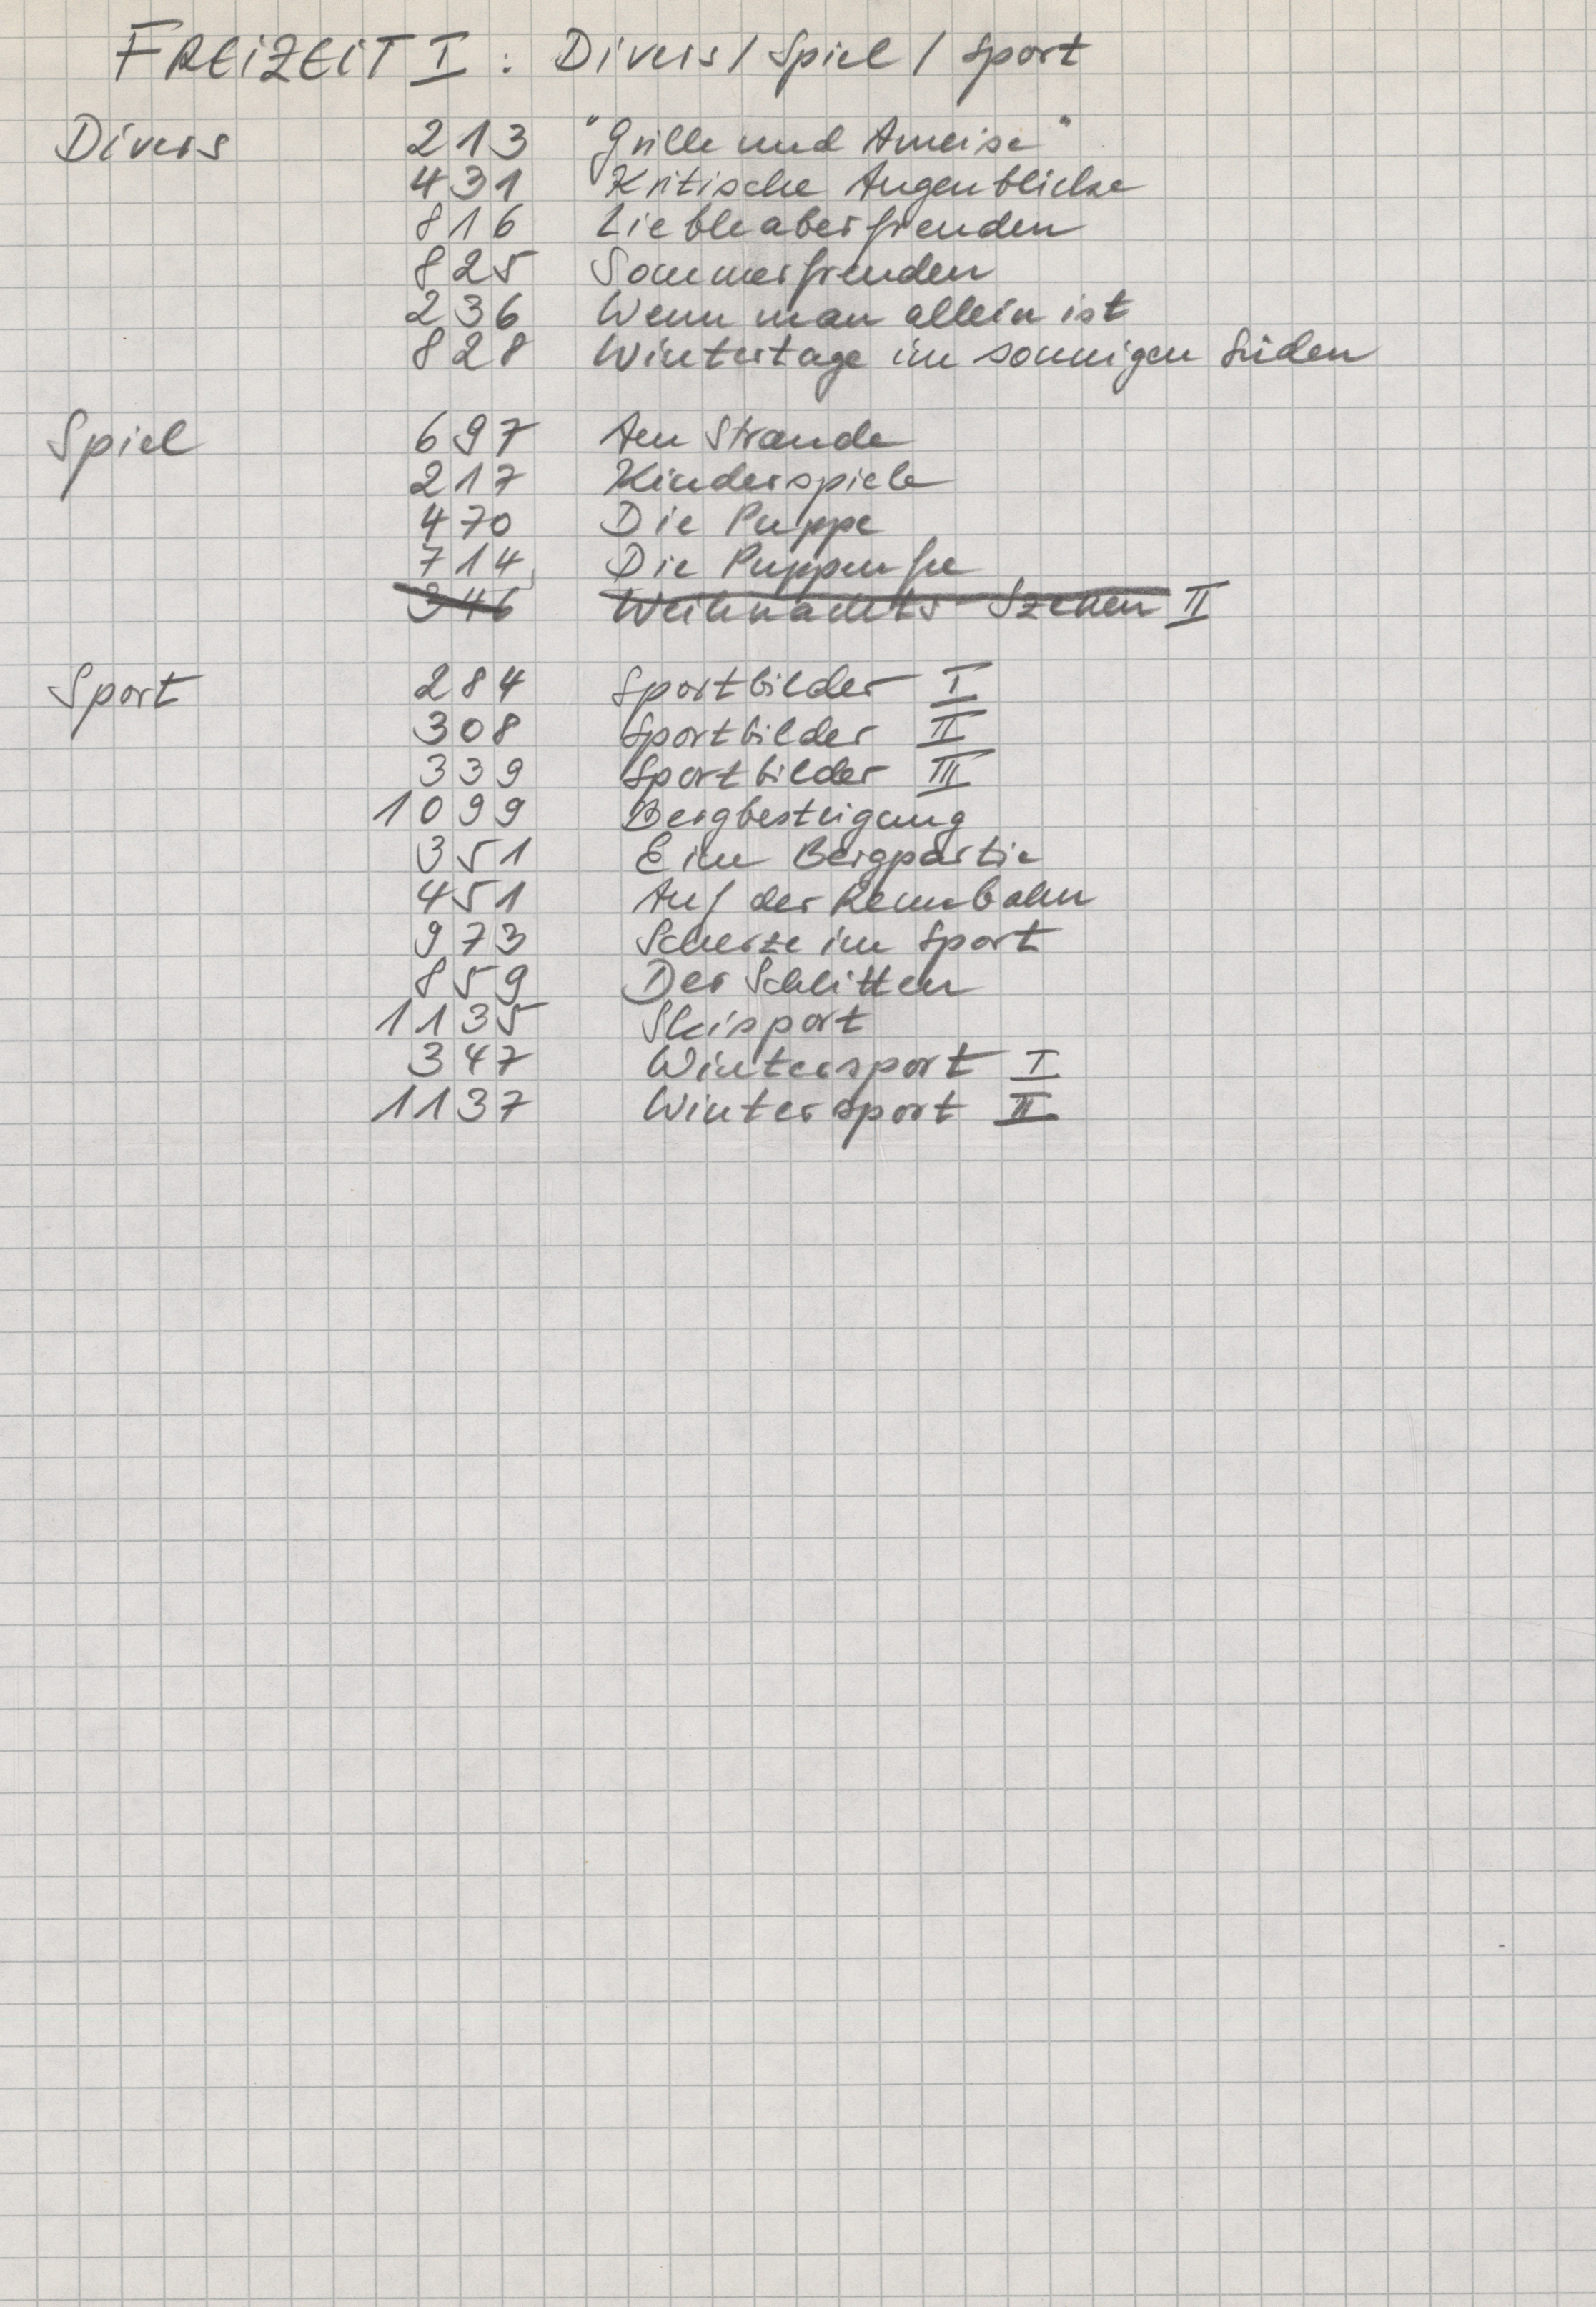 FREIZEIT I : Divers / Spiel / Sport
Divers 213 "Grille und Ameise"
431 Kritische Augenblicke
816 Liebhaberfreuden
825 Sommerfreuden
236 Wenn man allein ist
828 Wintertage im sonnigen Süden
Spiel 697 Am Strande
217 Kinderspiele
470 Die Puppe
714 Die Puppenfee
346 Weihnachts-Szenen II
Sport 284 Sportbilder I
308 Sportbilder II
339 Sportbilder III
1099 Bergbesteigung
351 Eine Bergpartie
451 Auf der Rennbahn
973 Scherze im Sport
859 Der Schlitten
1135 Skisport
347 Wintersport I
1137 Wintersport II